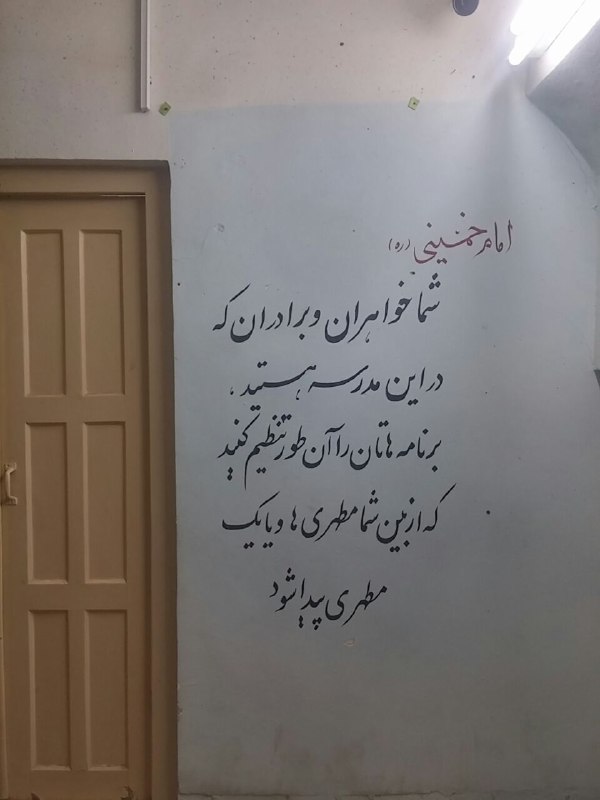 امام خمینی (ره)
شما خواهران و برادران که
در این مدرسه هستید،
برنامه هاتان را آن طور تنظیم کنید
که از بین شما مطهری ها و یا یک
مطهری پیدا شود